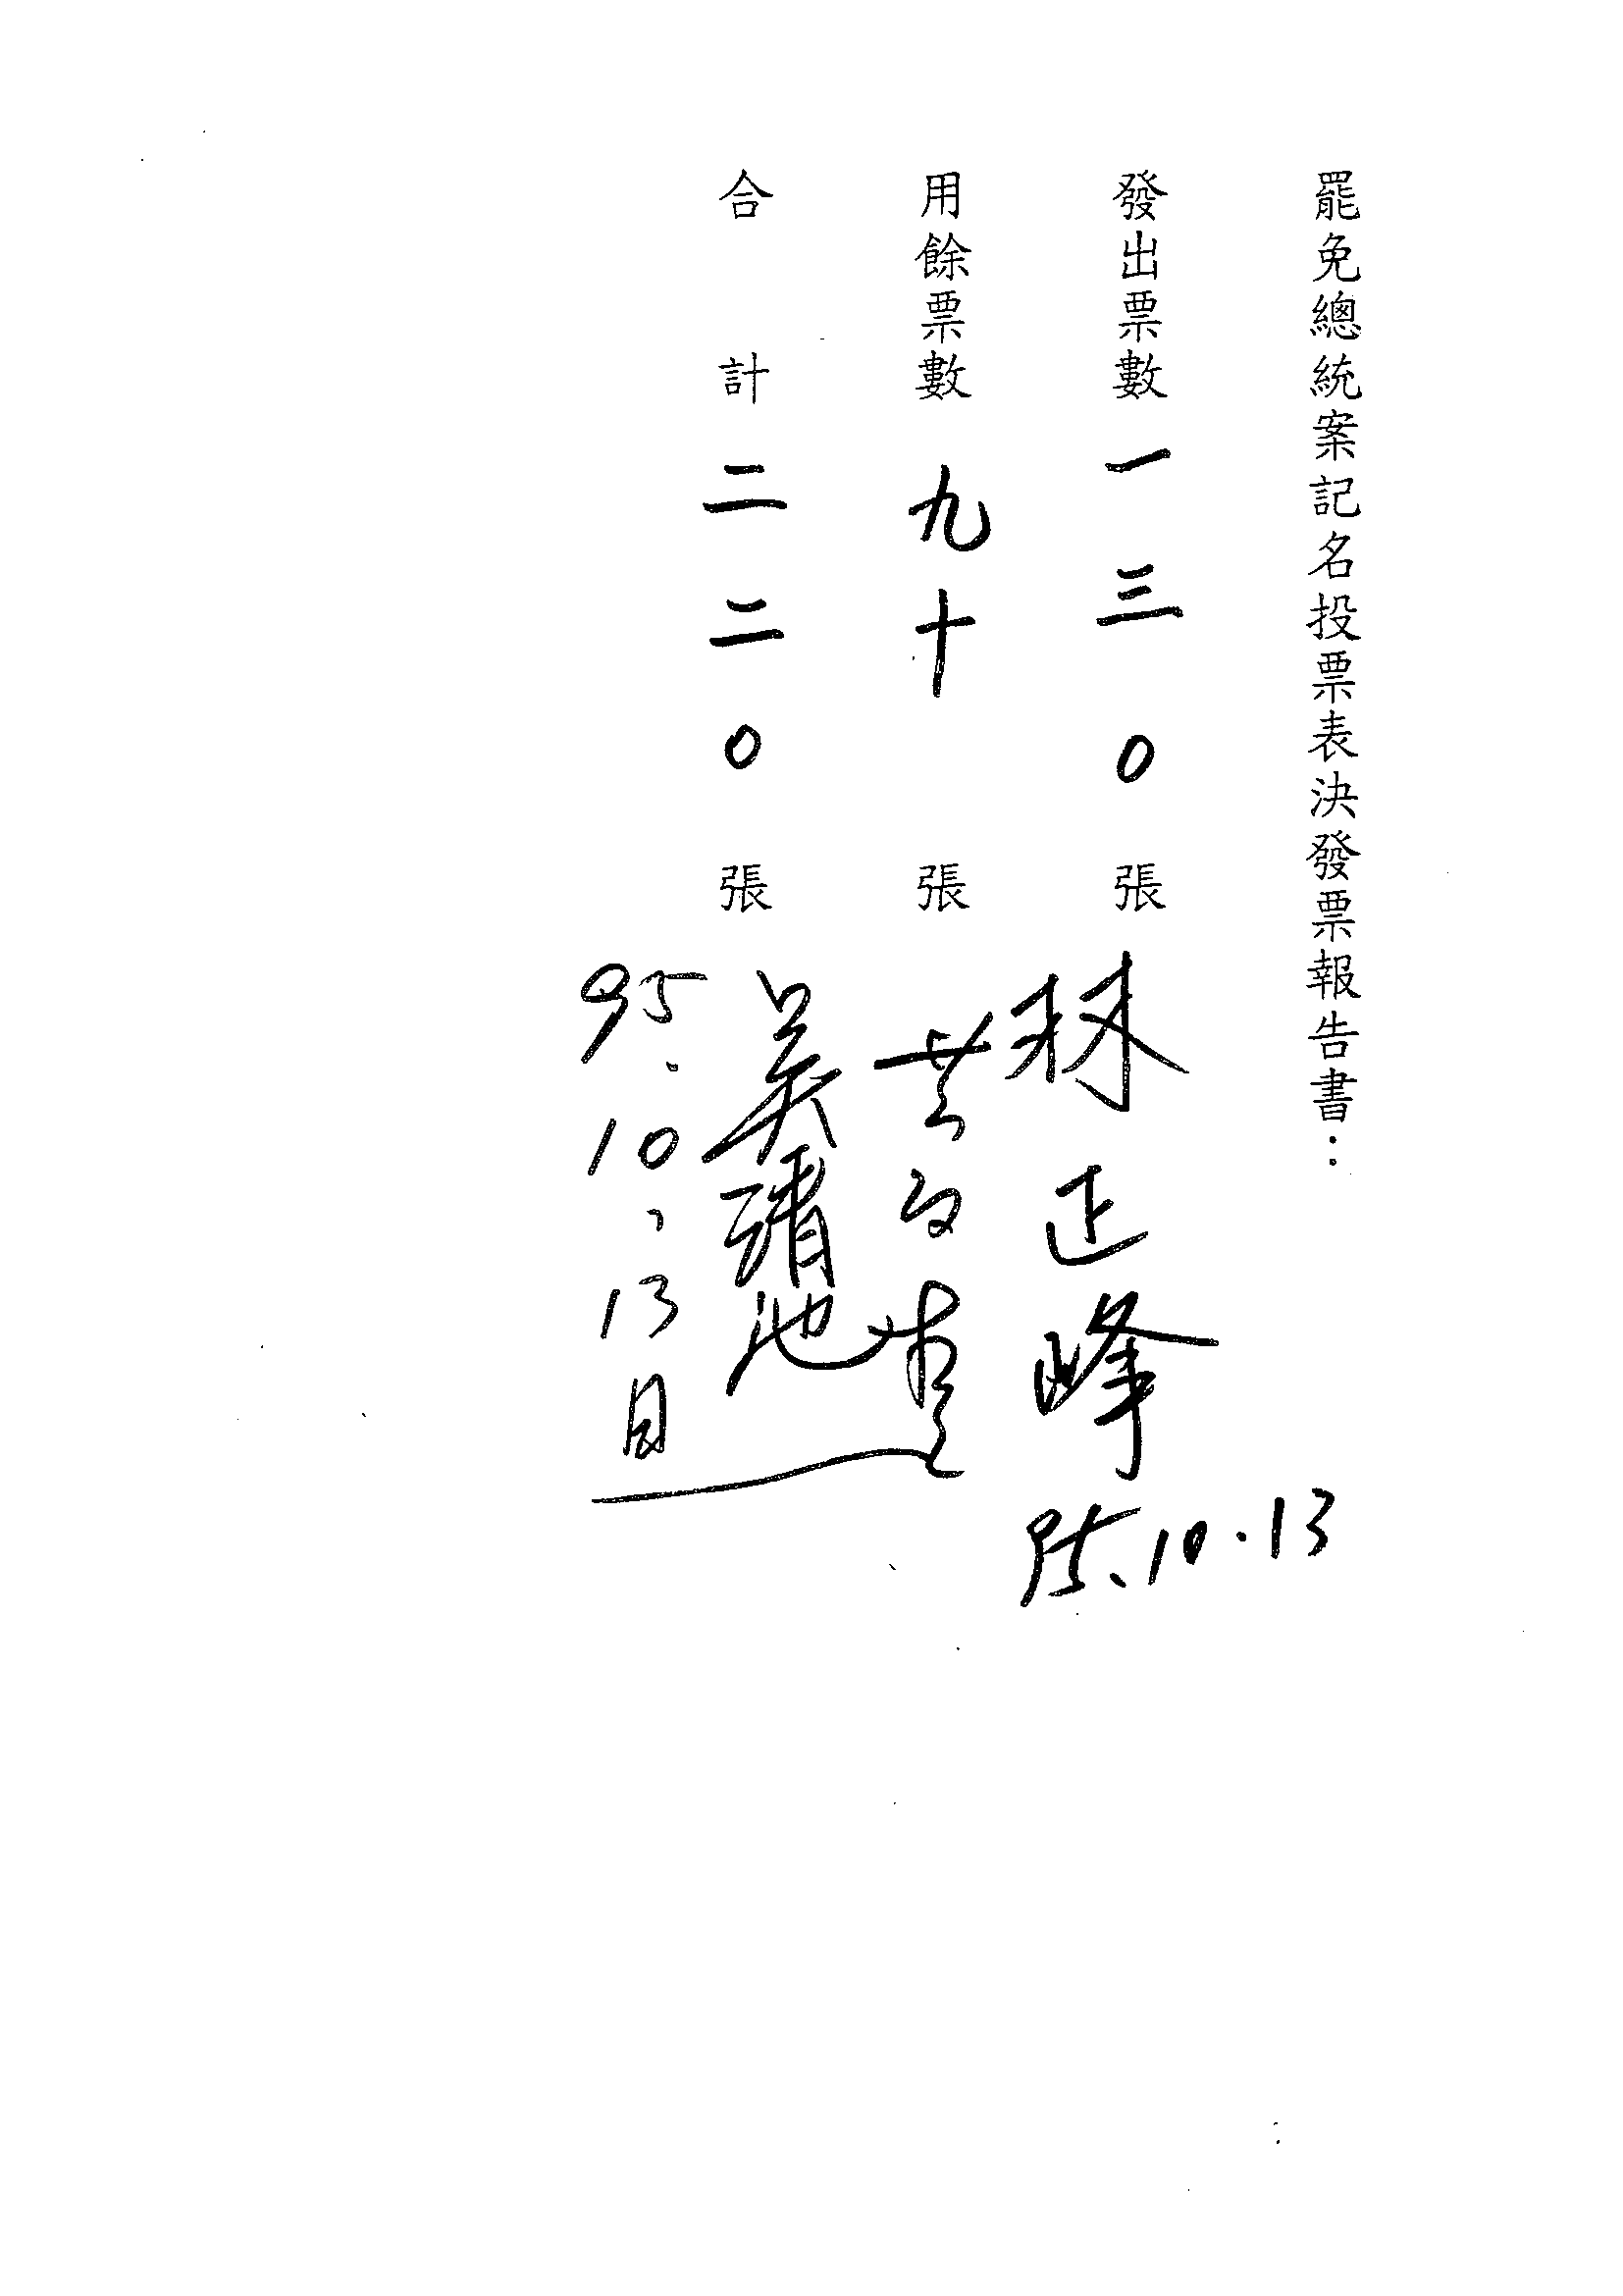 罷免總統案記名投票表決發票報告書：
發出票數一三０張
用餘票數九十張
合計二二０張
林正峰
95.10.13
吳清池
95.10.13日